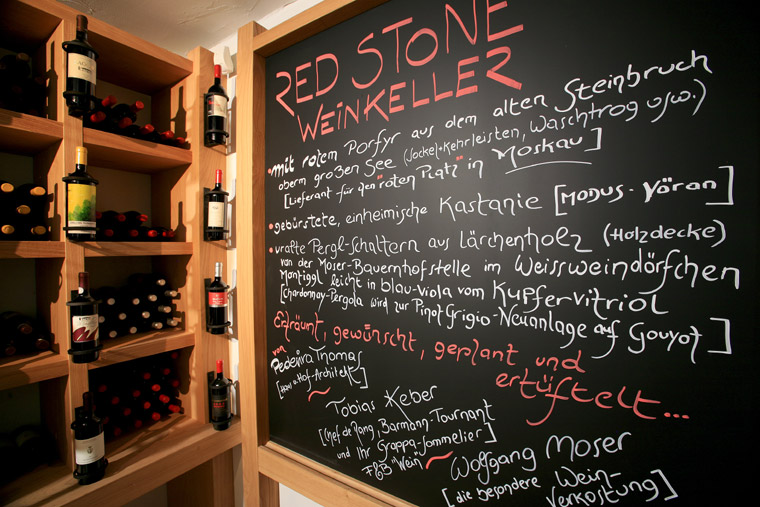 RED STONE
WEINKELLER
• mit rotem Porfyr aus dem alten Steinbruch
oberm großen See (Sockel + Kehrleisten, Waschtrog usw.)
[Lieferant für den "roten Platz" in Moskau]
• gebürstete, einheimische Kastanie [MODUS - Vöran]
• uralte Pergl-Schaltern aus Lärchenholz (Holzdecke)
von der Moser-Bauernhofstelle im Weissweindörfchen
Montiggl leicht in blau-viola vom Kupfervitriol
[Chardonnay-Pergola wird zur Pinot Grigio-Neuanlage auf Gouyot]
Erträumt, gewünscht, geplant und
ertüftelt...
von
Pedevira Thomas
[Haus & Hof-Architekt]
Tobias Keber
[Chef de Rang, Barmann-Tournant
und Ihr Grappa-Sommelier]
F&B "Wein"
Wolfgang Moser
[die besondere Wein-
Verkostung]